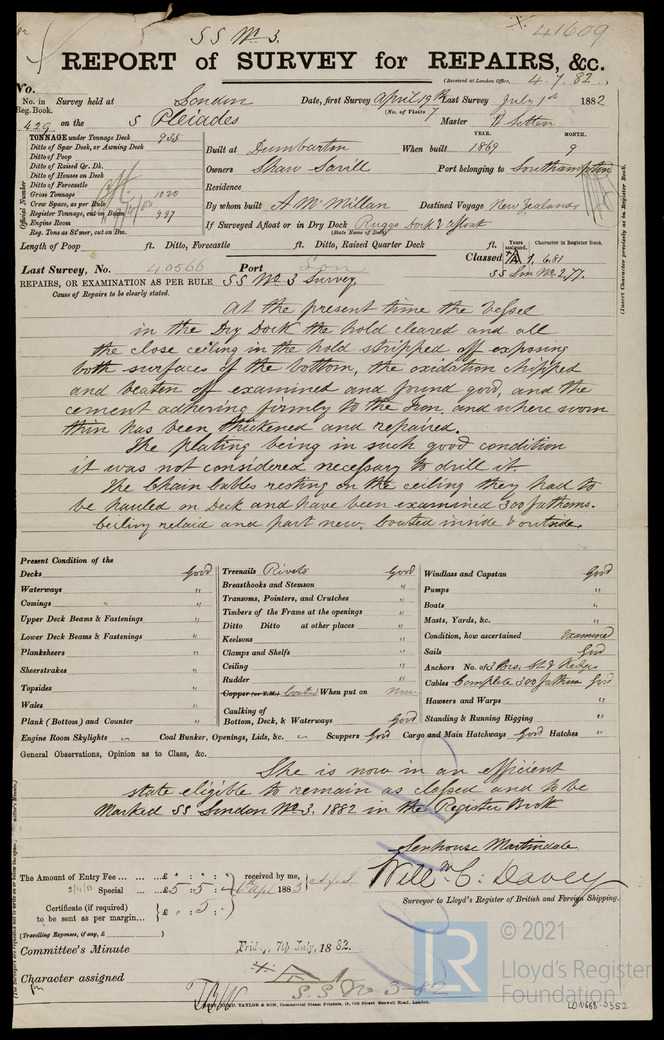 S S No 3.
41609
REPORT of SURVEY for REPAIRS, &c.
(Received at London Office, 4.7.82.)
No.
No. in Reg. Book. Survey held at London Date, first Survey April 19th Last Survey July 1st 1882
(No. of Visits 7)
429 on the S Pleiades Master
TONNAGE under Tonnage Deck 935
Ditto of Spar Deck, or Awning Deck
Ditto of Poop
Ditto of Raised Qr. Dk.
Ditto of Houses on Deck
Ditto of Forecastle
Gross Tonnage 1020
Crew Space, as per Rule
Register Tonnage, cut on Beam 997
Engine Room
Reg. Tons as St'mer, cut on Bm.
Official Number
YEAR. MONTH.
Built at Dumbarton When built 1869 9
Owners Shaw Savill Port belonging to Southampton
Residence
By whom built A McMillan Destined Voyage New Zealand
If Surveyed Afloat or in Dry Dock Dock & afloat
(State Name of Dock)
Length of Poop ft. Ditto, Forecastle ft. Ditto, Raised Quarter Deck ft.
Years assigned. Character in Register Book.
Classed A 1. 6.81
SS Lon No 2,77.
(Insert Character precisely as in Register Book.
Last Survey, No. 40566 Port Lon
REPAIRS, OR EXAMINATION AS PER RULE S S No 3 Survey,
Cause of Repairs to be clearly stated.
At the present time the Vessel
in the Dry Dock the hold cleared and all
the close ceiling in the hold stripped off exposing
both surfaces of the bottom, the oxidation chipped
and beaten off examined and found good, and the
cement adhering firmly to the Iron, and where worn
thin has been thickened and repaired.
The plating being in such good condition
it was not considered necessary to drill it.
The Chain Cables resting on the ceiling they had to
be hauled on Deck and have been examined 300 fathoms.
Ceiling relaid and part new. Coated inside & outside.
Present Condition of the
Decks Good
Waterways "
Comings "
Upper Deck Beams & Fastenings "
Lower Deck Beams & Fastenings "
Planksheers "
Sheerstrakes "
Topsides "
Wales "
Plank (Bottom) and Counter "
Treenails Rivets Good
Breasthooks and Stemson "
Transoms, Pointers, and Crutches "
Timbers of the Frame at the openings "
Ditto Ditto at other places "
Keelsons "
Clamps and Shelfs "
Ceiling "
Rudder "
Copper (or Y.M.) Coated When put on Now
Caulking of
Bottom, Deck, & Waterways Good
Windlass and Capstan Good
Pumps "
Boats "
Masts, Yards, &c. "
Condition, how ascertained Examined
Sails Good
Anchors No. of 3 Bors. St & Kedges
Cables Complete 300 fathom Good
Hawsers and Warps "
Standing & Running Rigging "
Engine Room Skylights " Coal Bunker, Openings, Lids, &c. " Scuppers Good Cargo and Main Hatchways Good Hatches "
General Observations, Opinion as to Class, &c.
She is now in an efficient
state eligible to remain as classed and to be
Marked SS London No 3. 1882 in the Register Book
Senhouse Martindale
Willm C: Davey
Surveyor to Lloyd's Register of British and Foreign Shipping.
The Amount of Entry Fee ... £ " : " : "
Special ... £ 5 : 5 : "
received by me,
188
Certificate (if required)
to be sent as per margin... £ " : 5 :
(Travelling Expenses, if any, £ )
Committee's Minute Friday, 7th July, 1882.
Character assigned
S.S No 3-82
TAYLOR & SON, Commercial Steam Printers, 18, Old Street, Goswell Road, London.
LR © 2021
Lloyd's Register
Foundation
LON668-0352